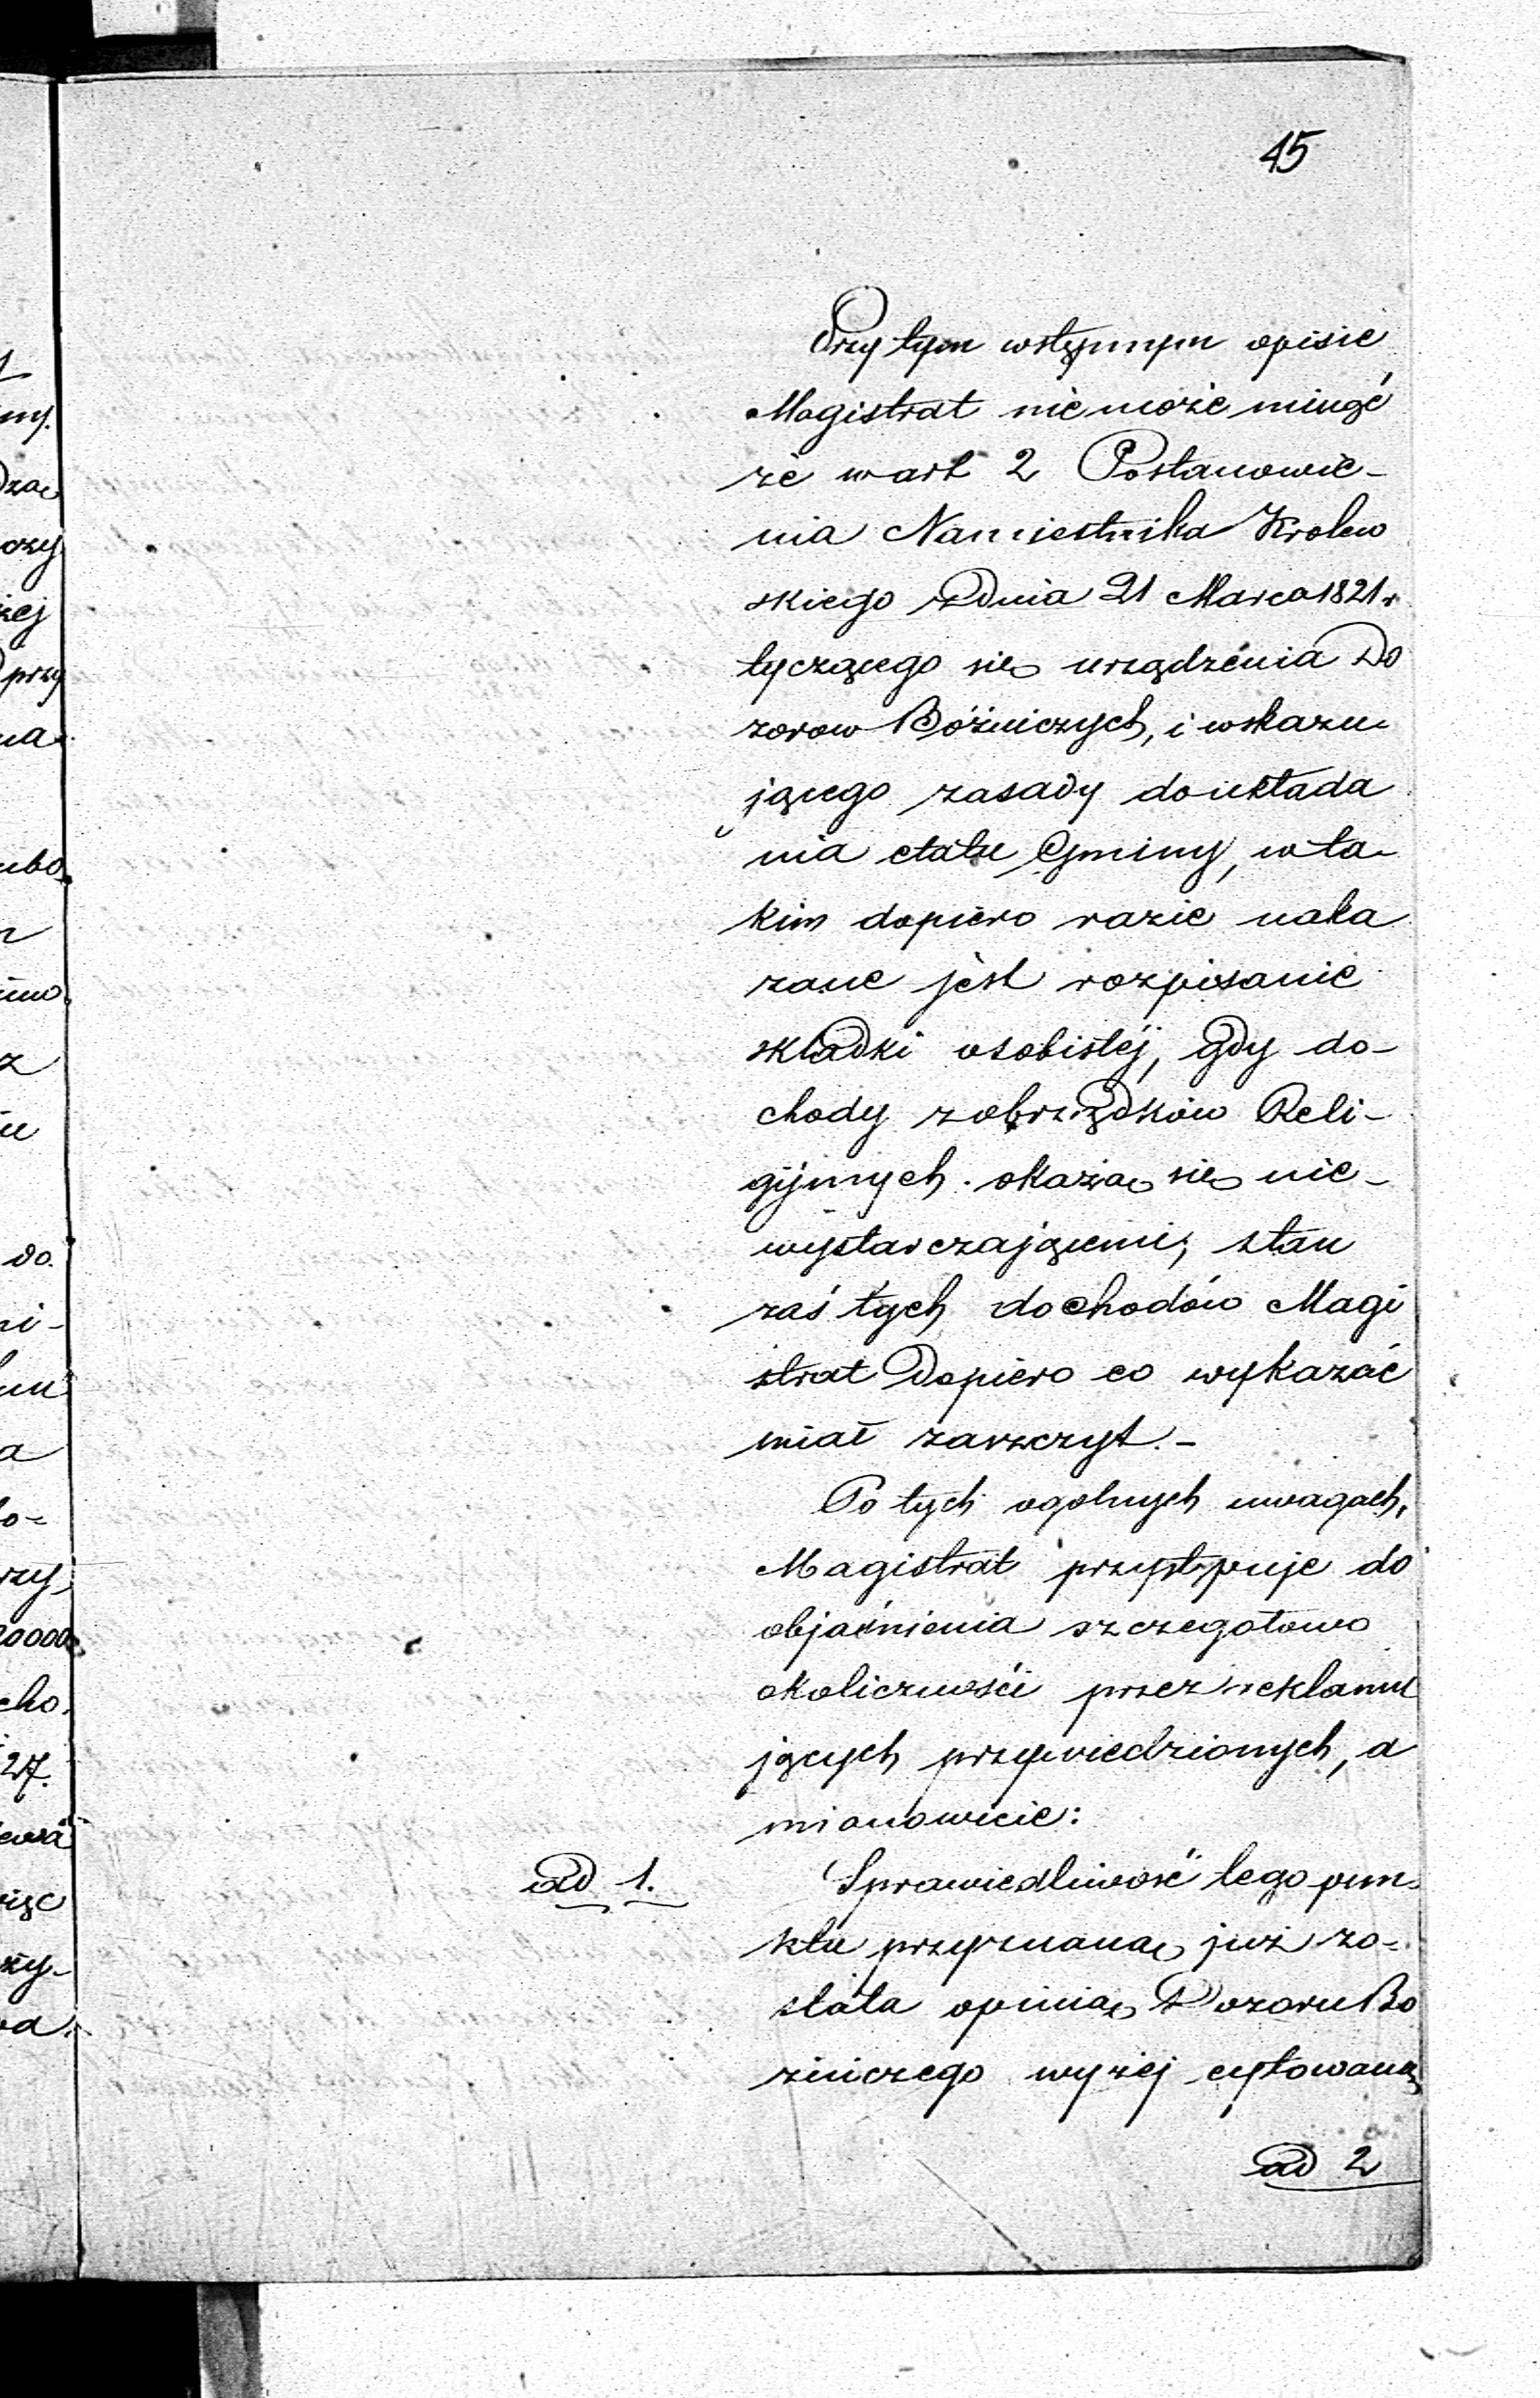 45
Przy tym wstępnym opisie
Magistrat nie może minąć
że w art 2 Postanowie-
nia Namiestnika Krolew
skiego z Dnia 21 Marca 1821 r
tyczącego się urządzenia Do
zorow Bóżniczych, i wskazu
jącego zasady do układa
nia etatu Gminy, w ta-
kim dopiero razie naka
zane jest rozpisanie
składki osobistéj, gdy do-
chody z obrządków Reli-
gijnych okażą się nie-
wystarczającemi; stan
zaś tych dochodów Magi
strat Dopiero co wykazać
miał zaszczyt.-
Po tych ogolnych uwagach,
Magistrat przystępuje do
objaśnienia szczegołowo
okoliczności przez reklamu
jących przywiedzionych, a
mianowicie:
ad 1. Sprawiedliwość tego pun-
ktu przyznaną już zo-
stała opinią Dozoru Bo
zniczego wyżej cytowaną
ad 2